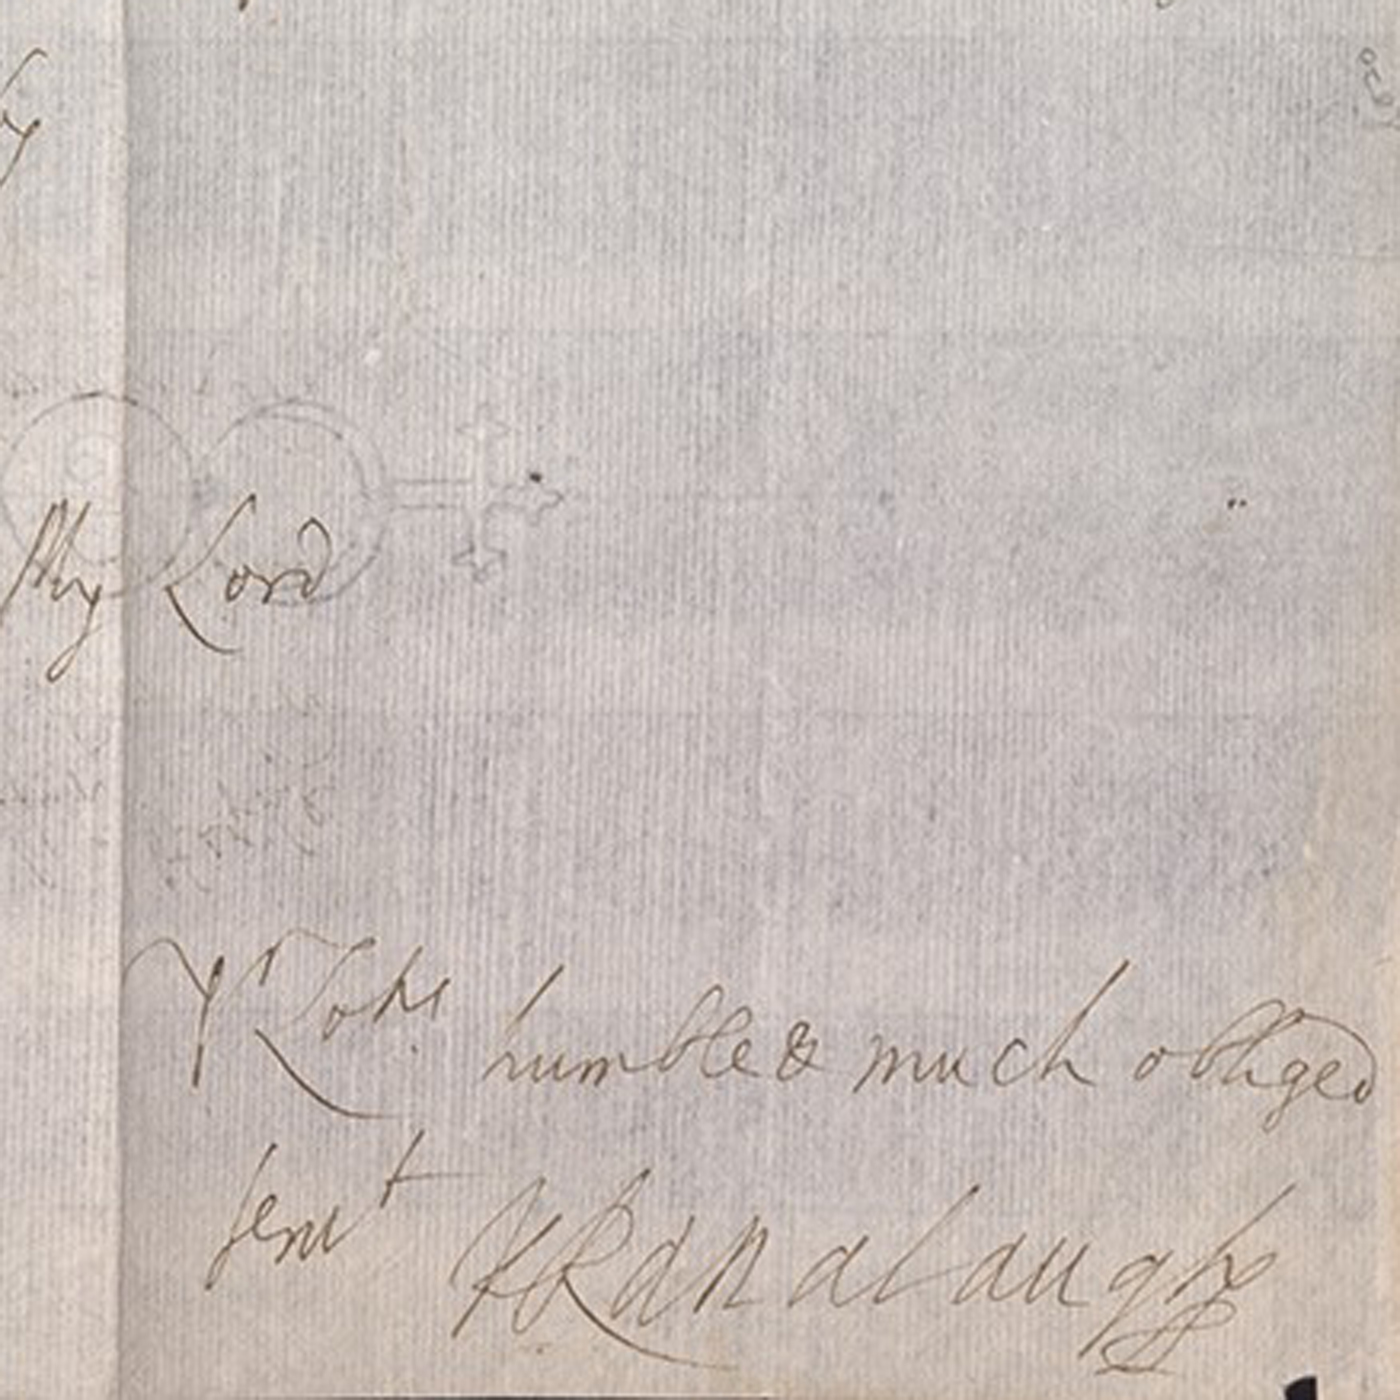 My Lord
Yr Lops humble & much obliged
servt K Ranalaugh